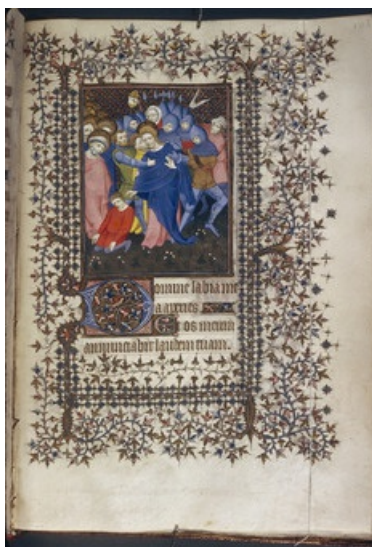 Domine labia me
a aperies
Et os meum
annunciabit laudem tuam.